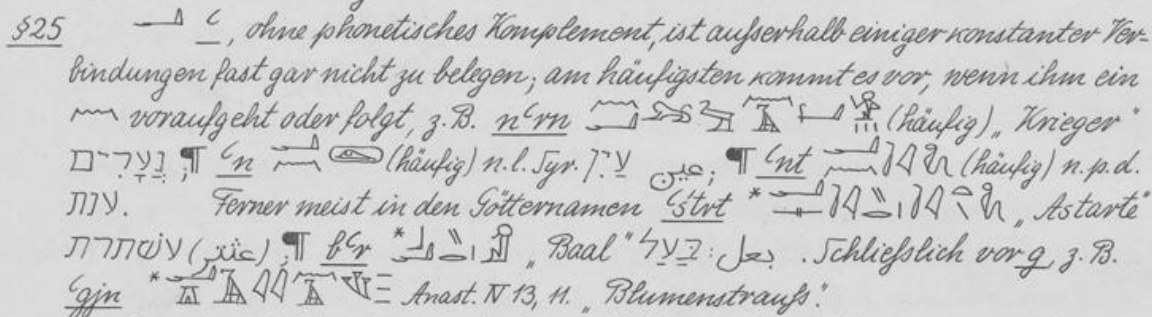 §25 𓂝 ꜥ, ohne phonetisches Komplement, ist außerhalb einiger konstanter Ver-
bindungen fast gar nicht zu belegen; am häufigsten kommt es vor, wenn ihm ein
𓈖 voraufgeht oder folgt, z.B. nꜥrn (häufig) „Krieger"
נְעָרִים; ¶ ꜥn (häufig) n.l. Syr. עַיִן عين; ¶ ꜥnt (häufig) n.p.d.
ענת. Ferner meist in den Götternamen ꜥśtrt * „Astarte"
עשתרת (عثتر); ¶ bꜥr * „Baal" בַּעַל: بعل. Schließlich vor g, z.B.
ꜥgjn * Anast. IV 13, 11. „Blumenstrauß".